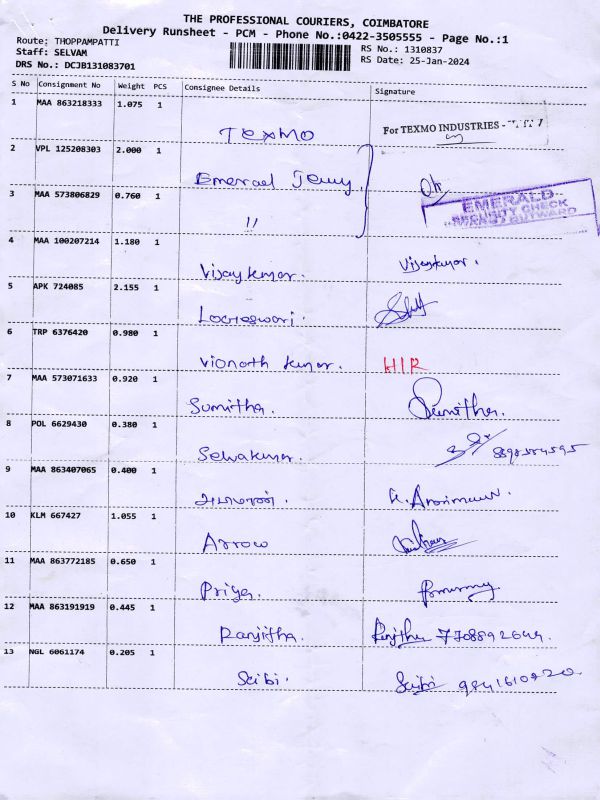 THE PROFESSIONAL COURIERS, COIMBATORE
Delivery Runsheet - PCM - Phone No.:0422-3505555 - Page No.:1
Route: THOPPAMPATTI
Staff: SELVAM
DRS No.: DCJB131083701
RS No.: 1310837
RS Date: 25-Jan-2024
S No Consignment No Weight PCS Consignee Details Signature
1 MAA 863218333 1.075 1
TEXMO For TEXMO INDUSTRIES -
2 VPL 125208303 2.000 1
Emerael Jewry Ok
EMERALD
SECURITY CHECK
INWARD / OUTWARD
3 MAA 573806829 0.760 1
"
4 MAA 100207214 1.180 1
Vijaykumar. Vijaykumar.
5 APK 724085 2.155 1
Logeswari.
6 TRP 6376420 0.980 1
Vionoth kumar. HIR
7 MAA 573071633 0.920 1
Sumitha. Sumitha.
8 POL 6629430 0.380 1
Selvakumar.
9 MAA 863407065 0.400 1
10 KLM 667427 1.055 1
Arrow
11 MAA 863772185 0.650 1
Priya.
12 MAA 863191919 0.445 1
Ranjitha. Ranjitha 7708892649.
13 NGL 6061174 0.205 1
Scibi. Scibi 9841610820